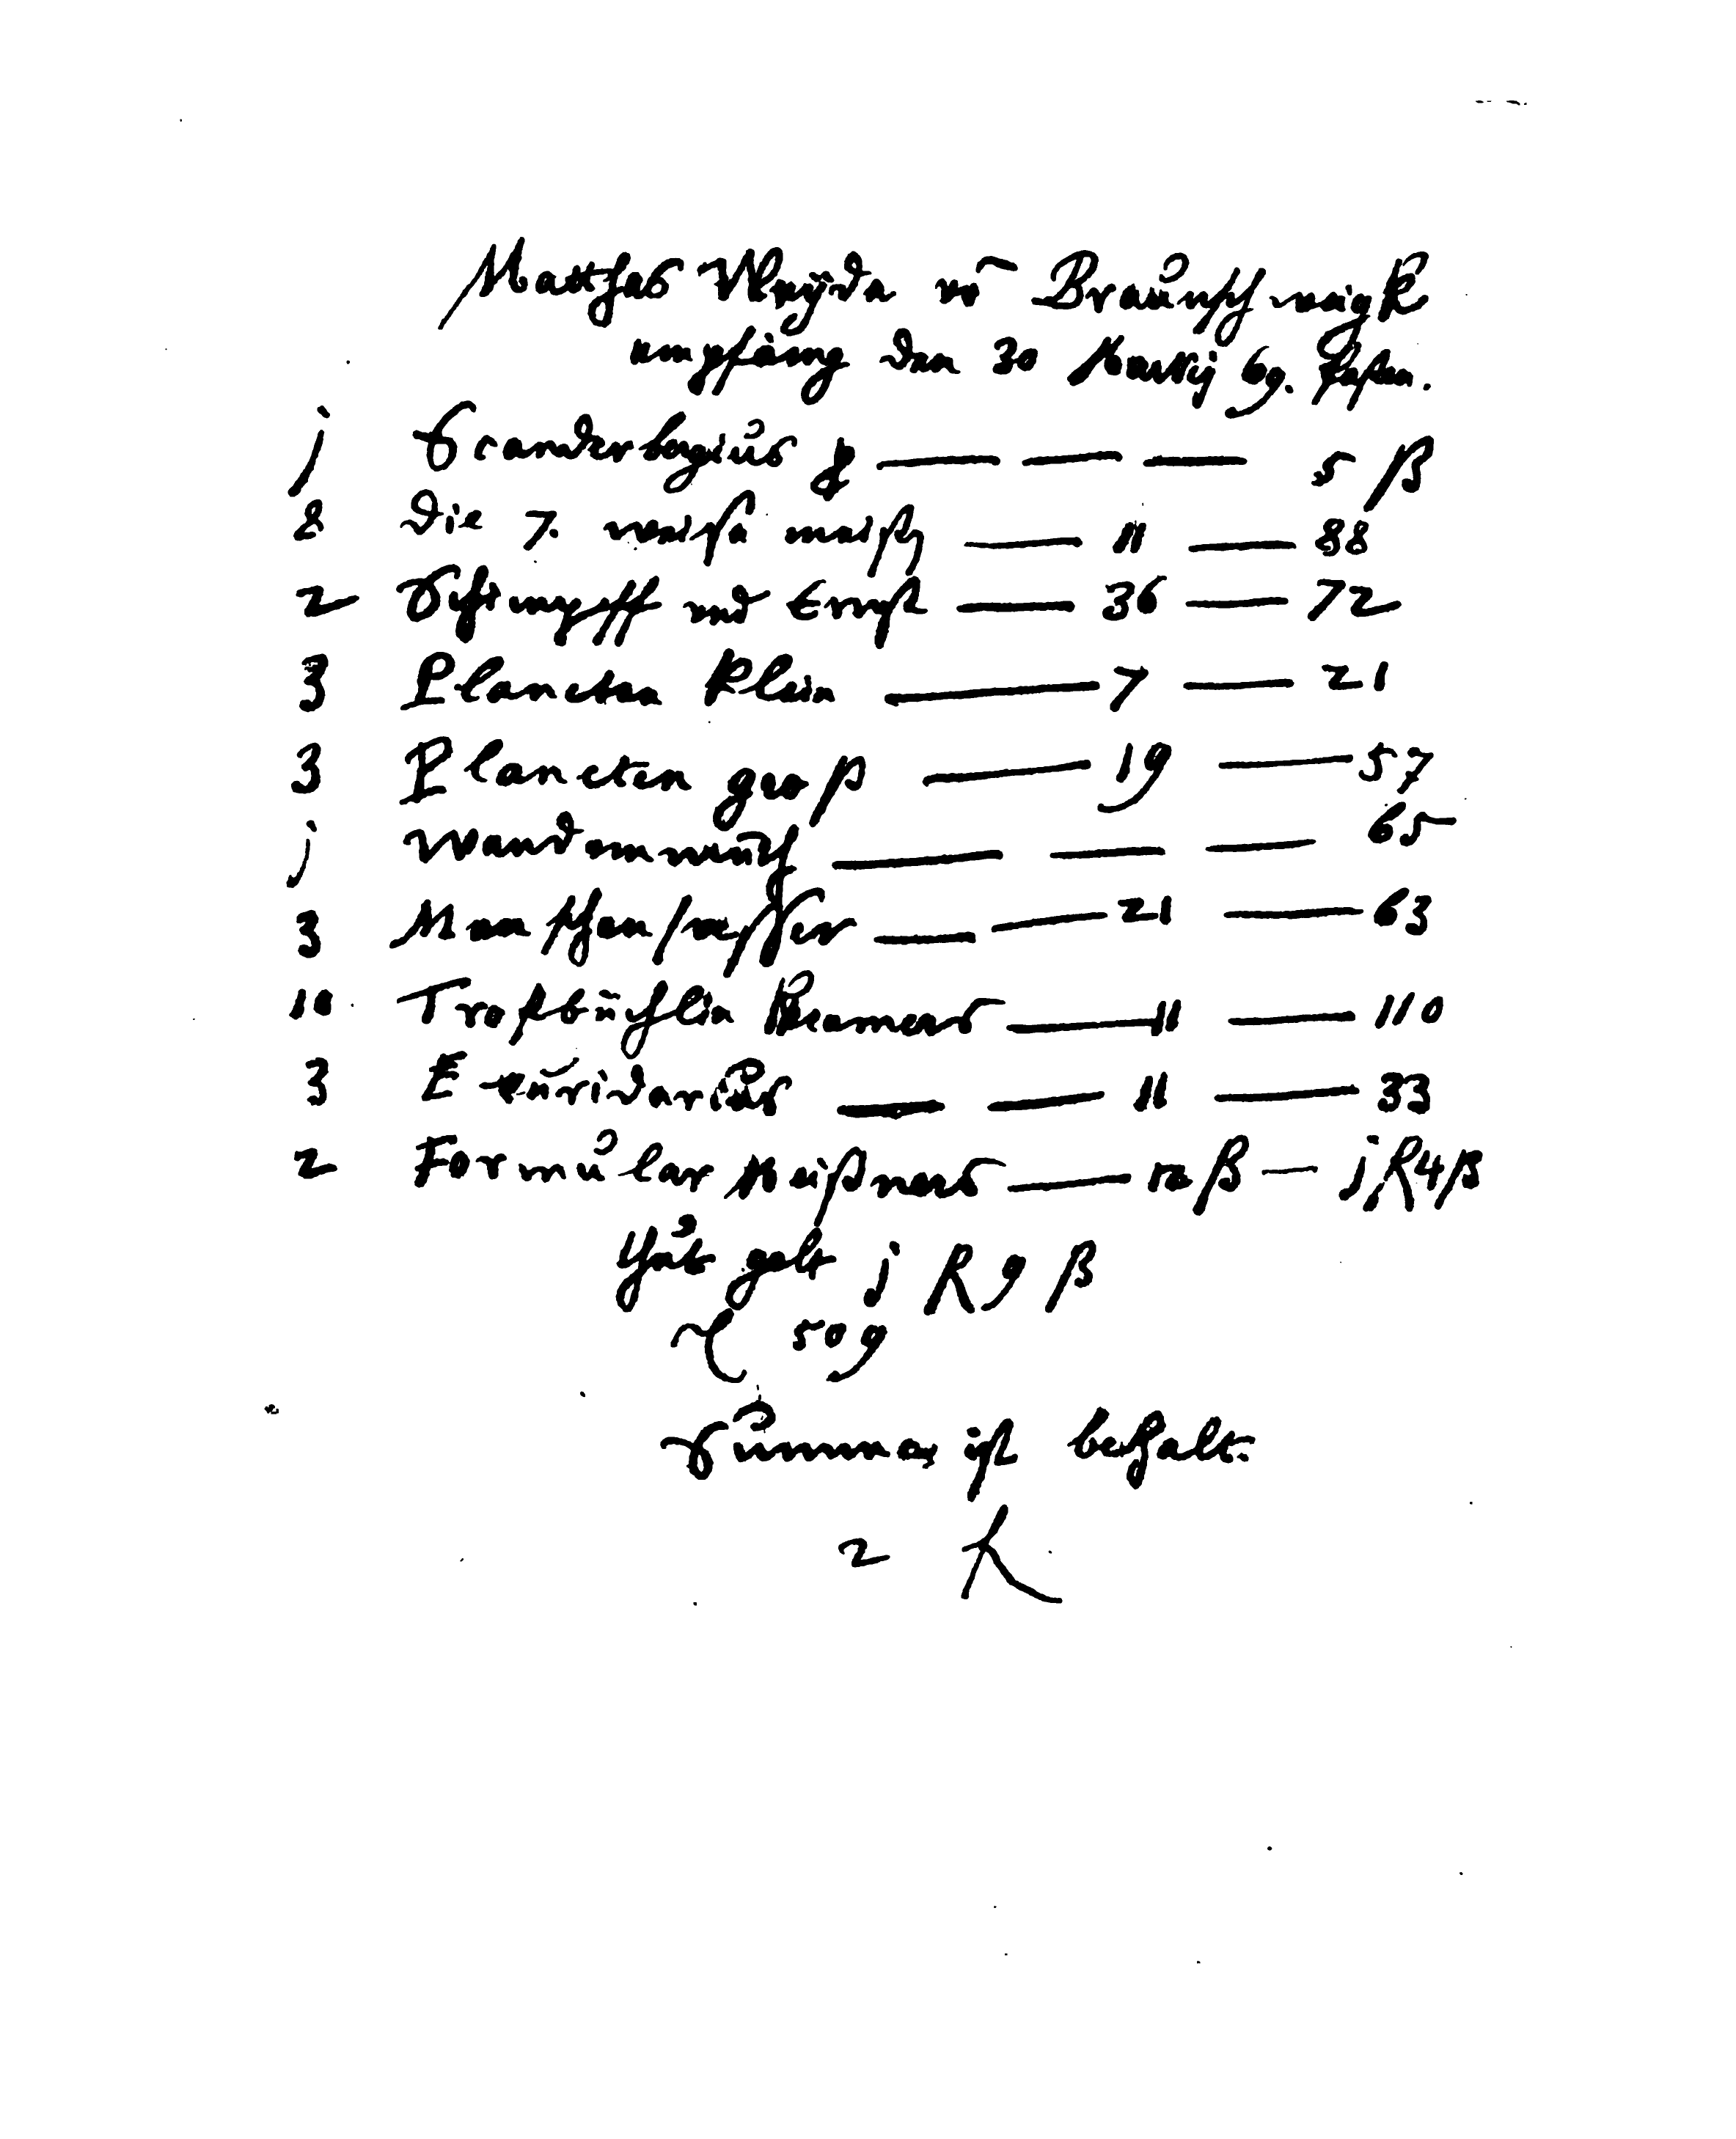 Mattheß Weyda vō Braunschweigk
empfing den 30 Martij 69. 
j Scanderbegius — — — 5 ß
8 Die 7. weise meister — 11 — 88
2 Schimpff und Ernst — 36 — 72
3 Planeten klein — 7 — 21
3 Planeten groß — 19 — 57
j Wendenmuth — — — 65
3 — — 21 — 63
10 Trostbüchlin Kramers — 11 — 110
3 — — 11 — 33
2 Formular Meißners — 12 ß — j R 4 ß
Thut gelt j R 9 ß
509
Summa ist bezalt.
2 R